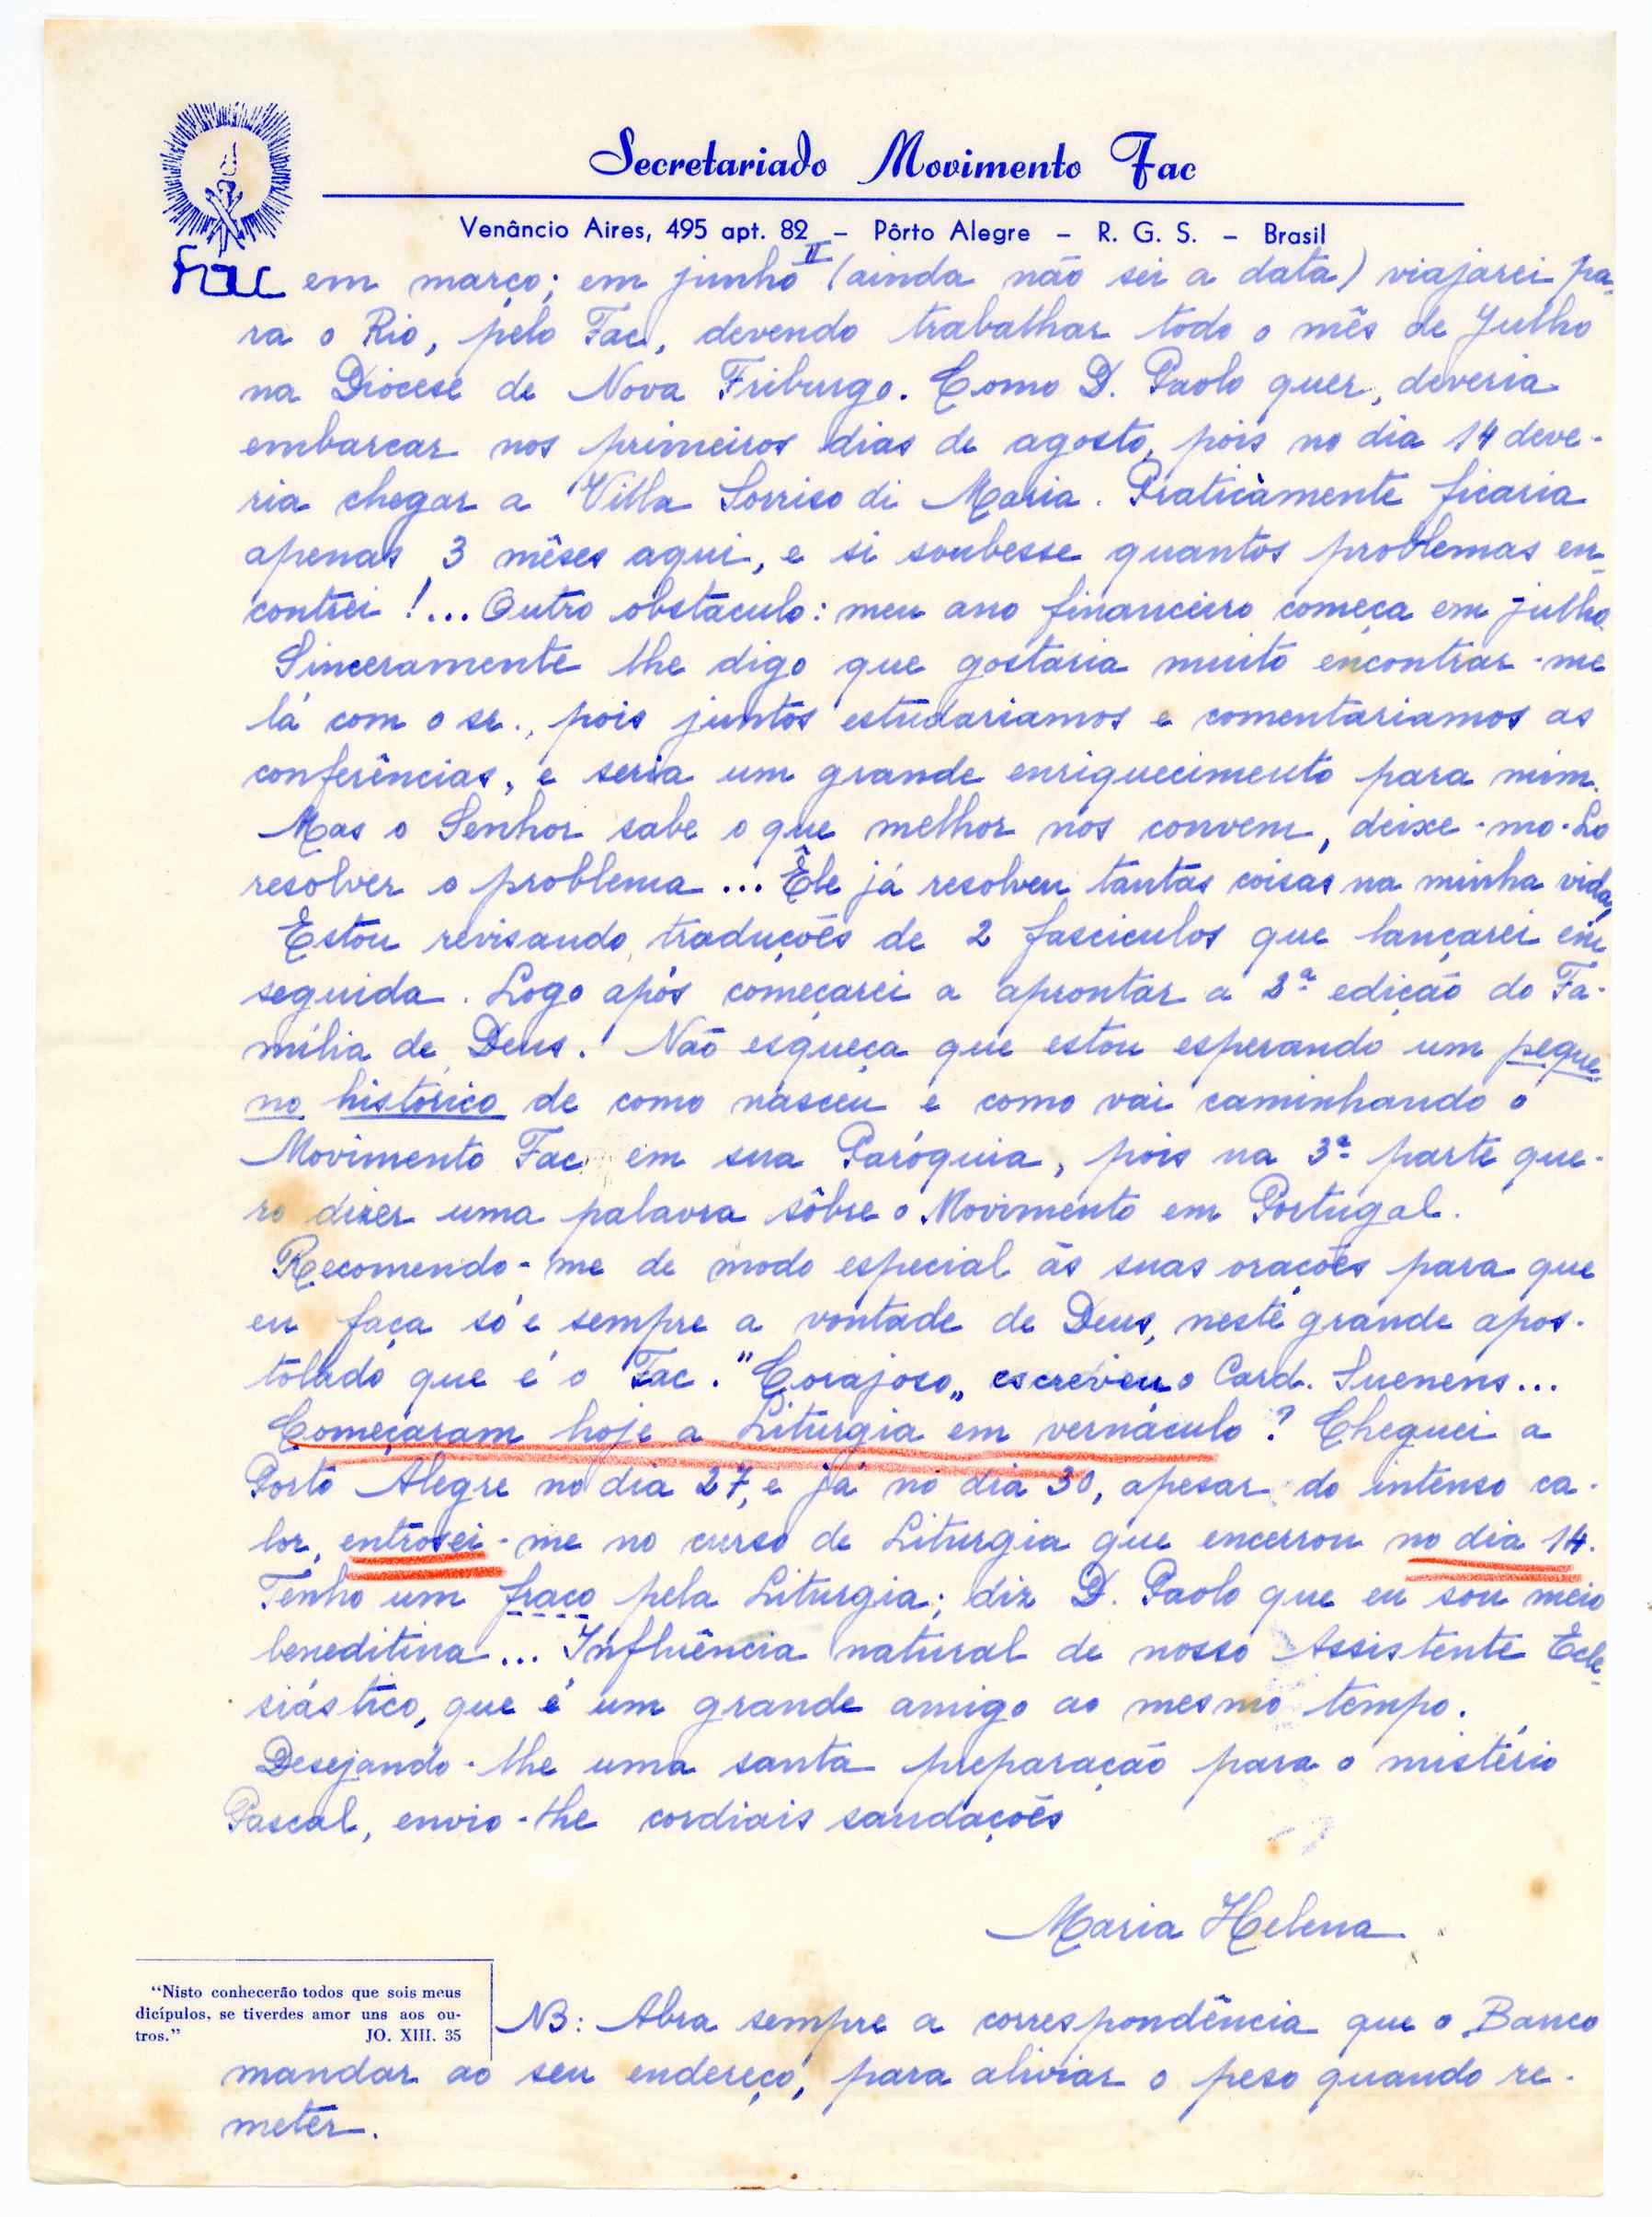 Secretariado Movimento Fac
Venâncio Aires, 495 apt. 82 – Pôrto Alegre – R. G. S. – Brasil
II
Fac em março; em junho (ainda não sei a data) viajarei pa-
ra o Rio, pelo Fac, devendo trabalhar todo o mês de Julho
na Diocese de Nova Friburgo. Como D. Paolo quer, deveria
embarcar nos primeiros dias de agosto, pois no dia 14 deve-
ria chegar a Villa Sorriso di Maria. Praticàmente ficaria
apenas 3 mêses aqui, e si soubesse quantos problemas en-
contrei!... Outro obstáculo: meu ano financeiro começa em julho.
Sinceramente lhe digo que gostaria muito encontrar-me
lá com o sr., pois juntos estudariamos e comentariamos as
conferências, e seria um grande enriquecimento para mim.
Mas o Senhor sabe o que melhor nos convem, deixe-mo-Lo
resolver o problema... Êle já resolveu tantas coisas na minha vida,
Estou revisando traduções de 2 fasciculos que lançarei em
seguida. Logo após começarei a aprontar a 2ª edição do Fa-
mília de Deus. Não esqueça que estou esperando um peque-
no histórico de como nasceu e como vai caminhando o
Movimento Fac em sua Paróquia, pois na 3ª parte que-
ro dizer uma palavra sôbre o Movimento em Portugal.
Recomendo-me de modo especial às suas orações para que
eu faça só e sempre a vontade de Deus, neste grande apos-
tolado que é o Fac. "Corajoso„ escreveu o Card. Suenens...
Começaram hoje a Liturgia em vernáculo? Cheguei a
Porto Alegre no dia 27, e já no dia 30, apesar do intenso ca-
lor, entrosei-me no curso de Liturgia que encerrou no dia 14.
Tenho um fraco pela Liturgia; diz D. Paolo que eu sou meio
beneditina... Influência natural de nosso Assistente Ecle-
siástico, que é um grande amigo ao mesmo tempo.
Desejando-lhe uma santa preparação para o mistério
Pascal, envio-lhe cordiais saudações
Maria Helena
"Nisto conhecerão todos que sois meus
dicípulos, se tiverdes amor uns aos ou-
tros." JO. XIII. 35
NB: Abra sempre a correspondência que o Banco
mandar ao seu endereço, para aliviar o peso quando re-
meter.